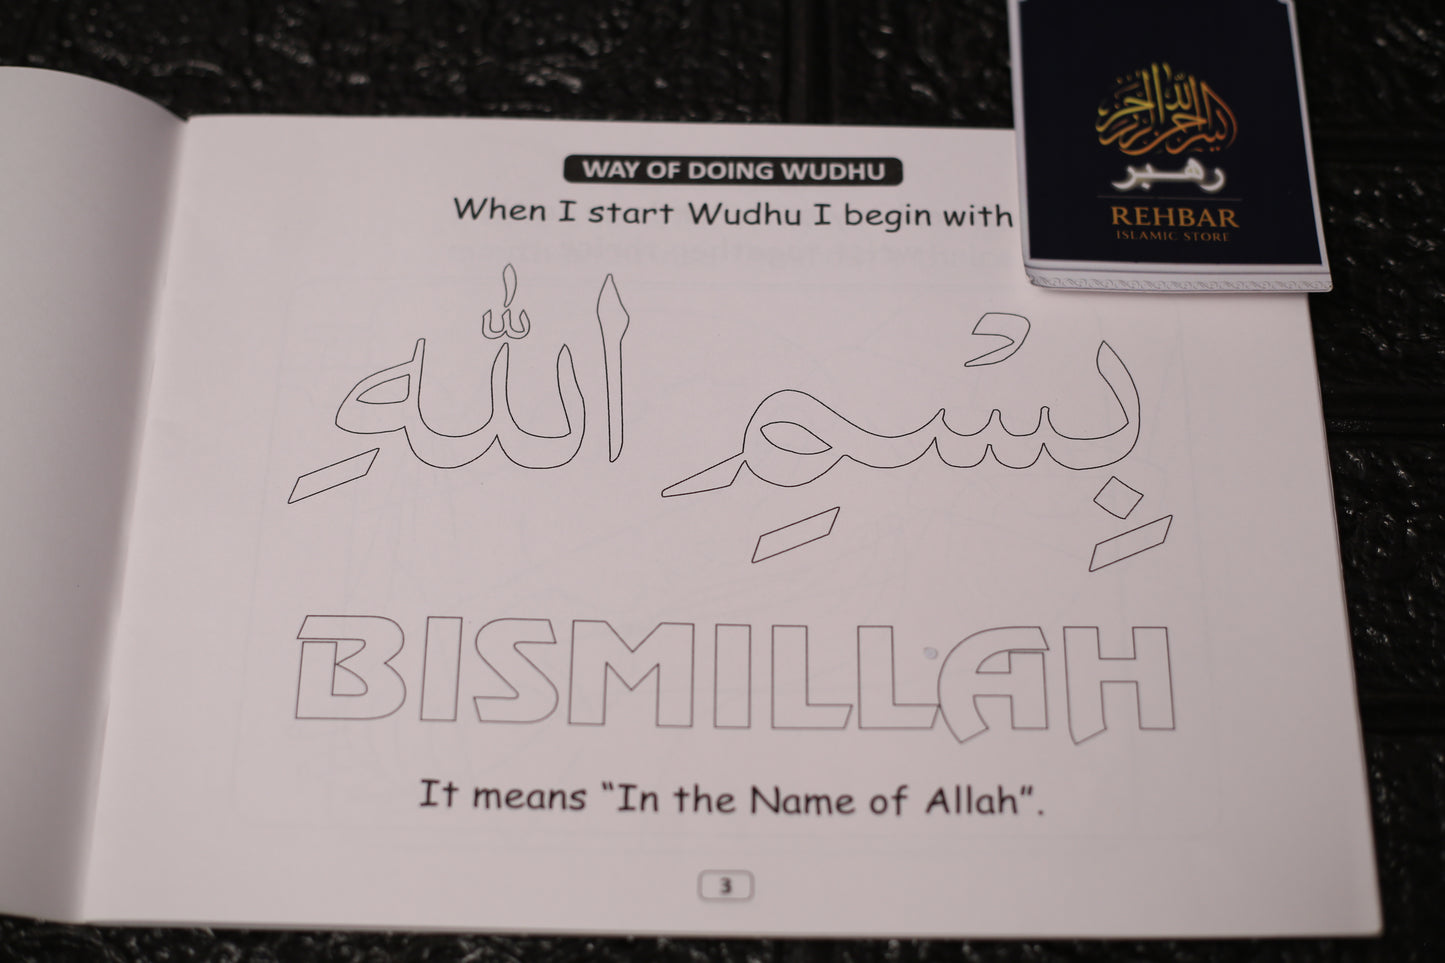 WAY OF DOING WUDHU
When I start Wudhu I begin with
بِسْمِ اللهِ
BISMILLAH
It means “In the Name of Allah”.
3
بسم الله الرحمن الرحيم
رهبر
REHBAR
ISLAMIC STORE